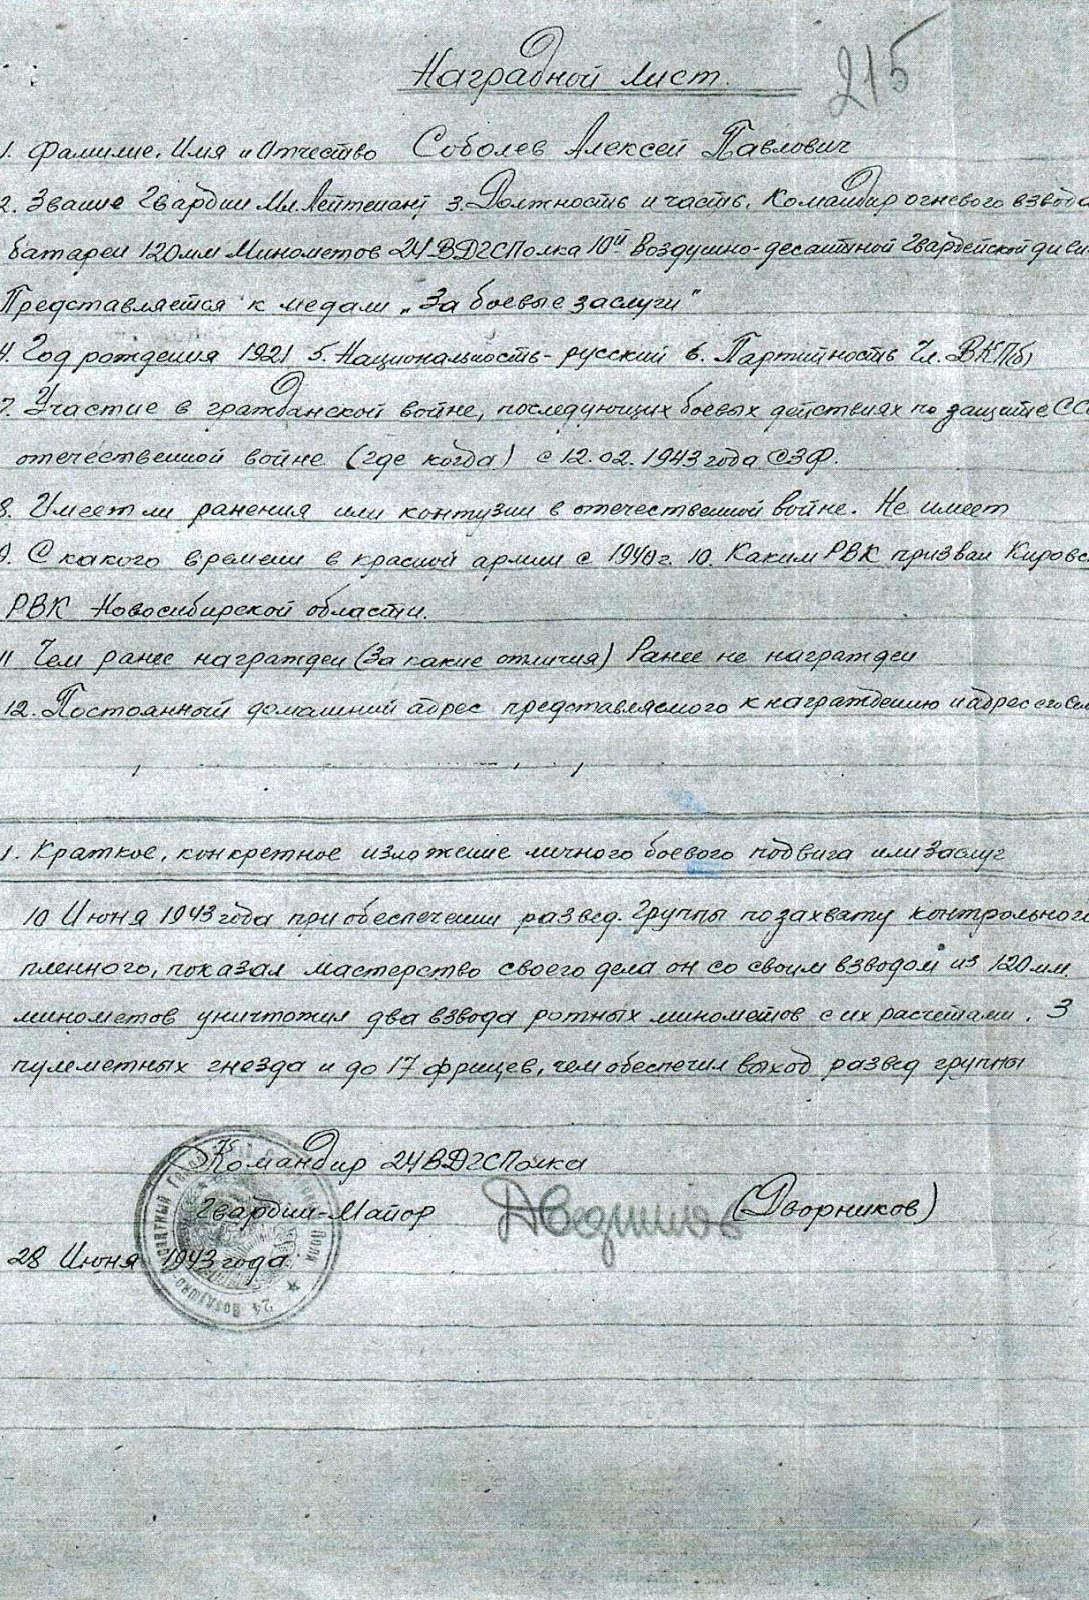 Наградной лист.
215
1. Фамилие, Имя и Отчество Соболев Алексей Павлович
2. Звание Гвардии Мл. Лейтенант 3. Должность и часть, Командир огневого взвода
батареи 120мм Минометов 24 ВДГСПолка 10й Воздушно-десантной Гвардейской диви
Представляется к медали „За боевые заслуги"
4. Год рождения 1921 5. Национальность - русский 6. Партийность Чл. ВКП(б)
7. Участие в гражданской войне, последующих боевых действиях по защите СС
отечественной войне (где когда) с 12.02.1943 года СЗФ.
8. Имеет ли ранения или контузии в отечественной войне. Не имеет
9. С какого времени в красной армии с 1940г. 10. Каким РВК призван Кировс
РВК Новосибирской области.
11 Чем ранее награжден (За какие отличия) Ранее не награжден
12. Постоянный домашний адрес представляемого к награждению и адрес его сем
1. Краткое, конкретное изложение личного боевого подвига или заслуг
10 Июня 1943 года при обеспечении развед. Группы по захвату контрольного
пленного, показал мастерство своего дела он со своим взводом из 120мм.
минометов уничтожил два взвода ротных минометов с их расчетами. 3
пулеметных гнезда и до 17 фрицев, чем обеспечил выход развед группы
Командир 24 ВДГСПолка
Гвардии-Майор (Дворников)
28 Июня 1943 года.